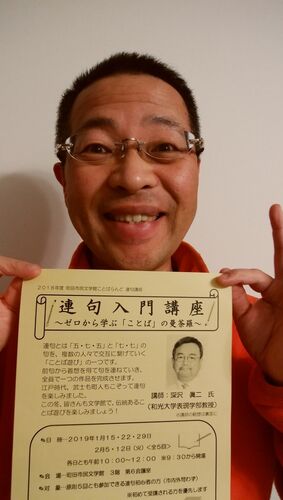 2018年度 町田市民文学館ことばらんど 連句講座
連句入門講座
～ゼロから学ぶ「ことば」の曼荼羅～
連句とは「五・七・五」と「七・七」の
句を、複数の人々で交互に繋げていく
「ことば遊び」の一つです。
前句から着想を得て句を連ねていき、
全員で一つの作品を完成させます。
江戸時代、武士も町人もこぞって連句
を楽しみました。
この冬、皆さんも文学館で、伝統ある
ことば遊びを楽しみましょう！
講師：深沢 眞二 氏
（和光大学表現学部教授）
日 時…2019年1月15・22・29日
2月5・12日（火）＜全5回＞
各日とも午前10:00～12:00 ※9：30から開場
会 場…町田市民文学館 3階 第6会議室
対 象…原則5回とも参加できる連句初心者の方（市内外問わず）
※初めて受講される方を優先します